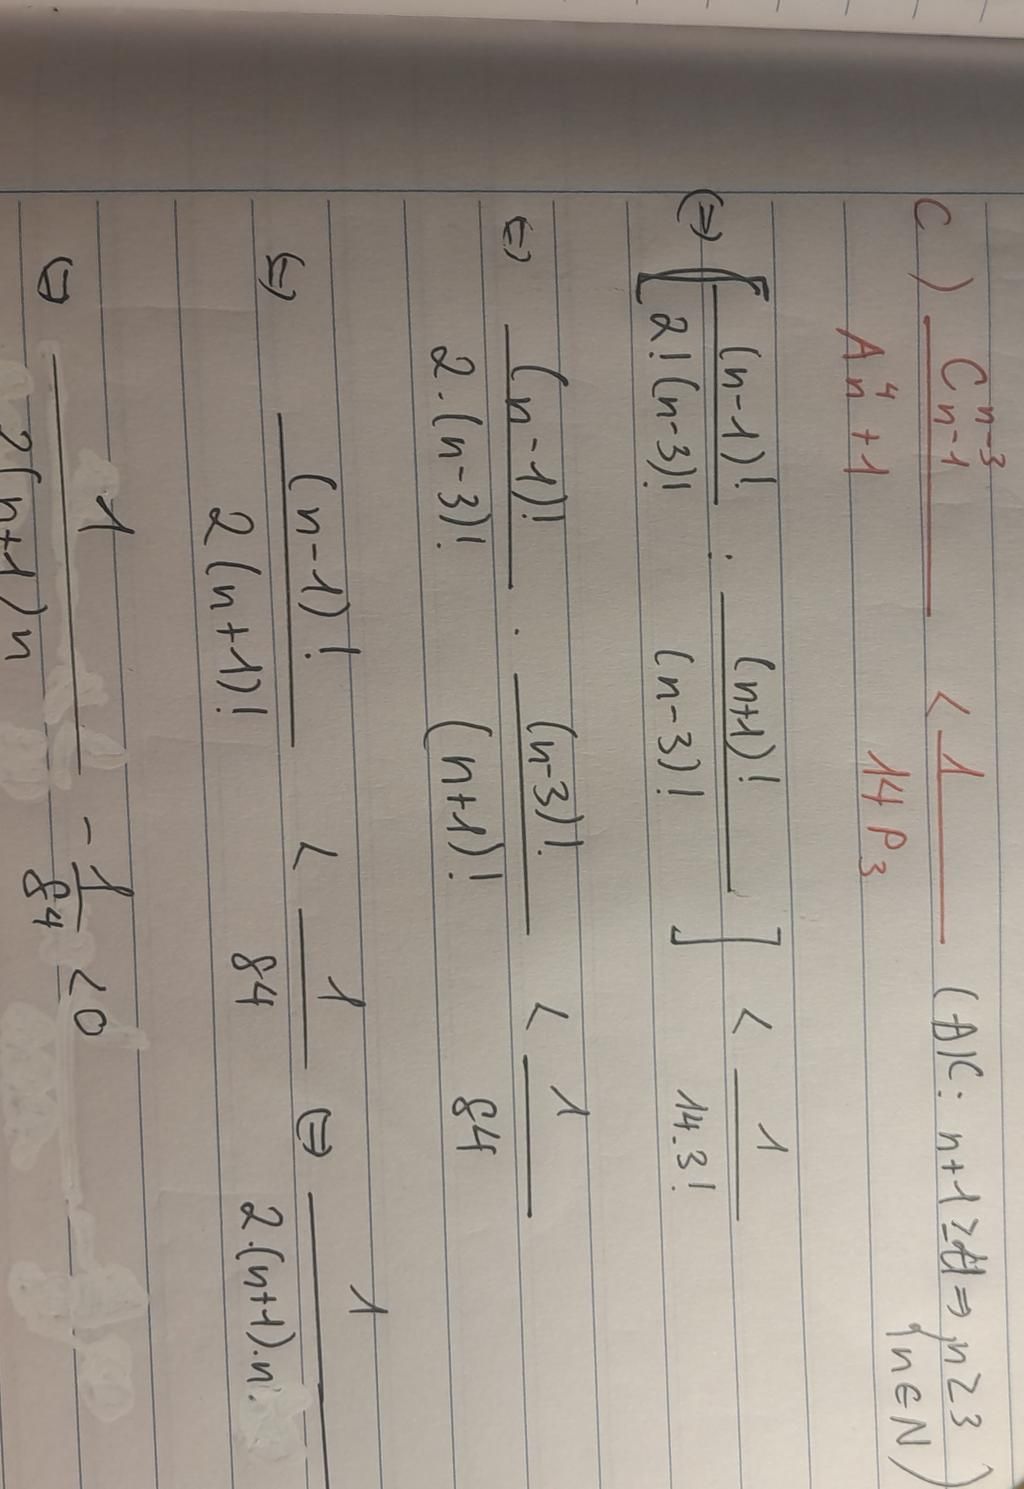 C) \frac{C_{n-1}^{n-3}}{A_{n+1}^{4}} < \frac{1}{14 P_3} (ĐK: n+1 ≥ 4 ⇒ { n ≥ 3 n ∈ N )
⇔ [ \frac{(n-1)!}{2!(n-3)!} : \frac{(n+1)!}{(n-3)!} ] < \frac{1}{14.3!}
⇔ \frac{(n-1)!}{2.(n-3)!} . \frac{(n-3)!}{(n+1)!} < \frac{1}{84}
⇔ \frac{(n-1)!}{2(n+1)!} < \frac{1}{84} ⇔ \frac{1}{2.(n+1).n}
⇔ \frac{1}{2(n+1)n} - \frac{1}{84} < 0